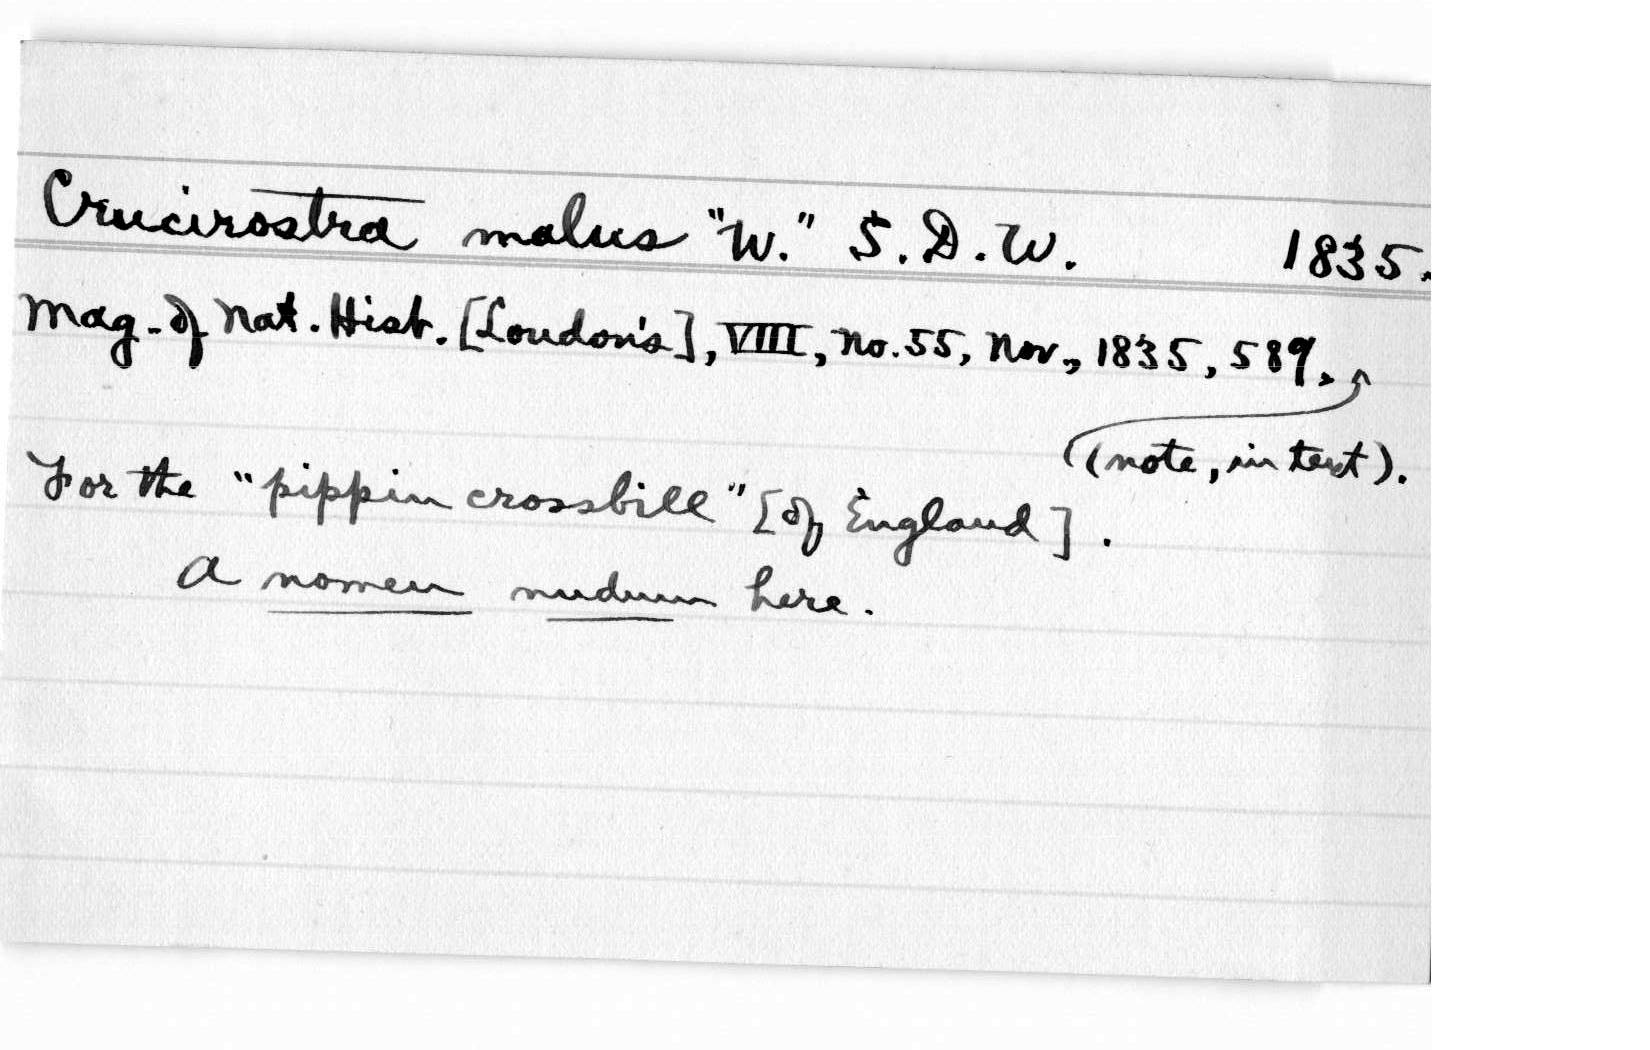 Crucirostra malus "W." S.D.W. 1835.
Mag. of Nat. Hist. [Loudon's], VIII, no. 55, Nov., 1835, 589,
(note, in text).
For the "pippin crossbill" [of England].
A nomen nudum here.